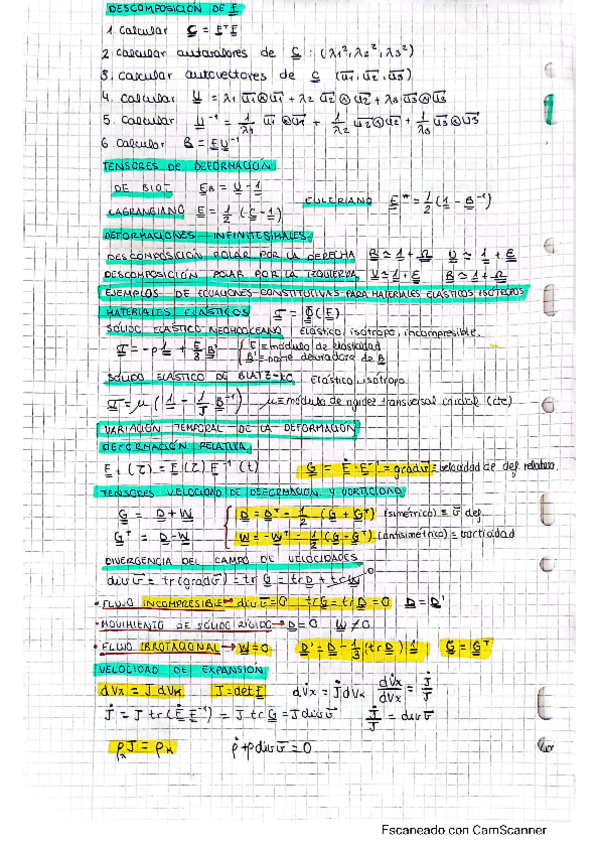 DESCOMPOSICIÓN DE F
1. Calcular C = FᵀF
2. Calcular autovalores de C : (λ1², λ2², λ3²)
3. Calcular autovectores de C (u1, u2, u3)
4. Calcular U = λ1 u1⊗u1 + λ2 u2⊗u2 + λ3 u3⊗u3
5. Calcular U⁻¹ = 1/λ1 u1⊗u1 + 1/λ2 u2⊗u2 + 1/λ3 u3⊗u3
6. Calcular R = FU⁻¹
TENSORES DE DEFORMACIÓN
DE BIOT E_B = U - 1 EULERIANO E* = 1/2 (1 - B⁻¹)
LAGRANGIANO E = 1/2 (C - 1)
DEFORMACIONES INFINITESIMALES
DESCOMPOSICIÓN POLAR POR LA DERECHA R ≃ 1 + Ω U ≃ 1 + E
DESCOMPOSICIÓN POLAR POR LA IZQUIERDA V ≃ 1 + E R ≃ 1 + Ω
EJEMPLOS DE ECUACIONES CONSTITUTIVAS PARA MATERIALES ELÁSTICOS ISÓTROPOS
MATERIALES ELÁSTICOS
SÓLIDO ELÁSTICO NEOHOOKEANO Elástico, isótropo, incompresible.
T = -p1 + E/3 B' { E = módulo de elasticidad
B' = parte desviadora de B
SÓLIDO ELÁSTICO DE BLATZ-KO Elástico, isótropo
T = μ (1 - 1/J B⁻¹) μ = módulo de rigidez transversal inicial (cte)
VARIACIÓN TEMPORAL DE LA DEFORMACIÓN
DEFORMACIÓN RELATIVA
F_t (τ) = F(τ) F⁻¹ (t) G = Ḟ·F⁻¹ = grad v = velocidad de def. relativa.
TENSORES VELOCIDAD DE DEFORMACIÓN Y VORTICIDAD
G = D + W { D = Dᵀ = 1/2 (G + Gᵀ) (simétrico) = v def.
Gᵀ = D - W W = -Wᵀ = 1/2 (G - Gᵀ) (antisimétrico) = vorticidad
DIVERGENCIA DEL CAMPO DE VELOCIDADES
div v = tr(grad v) = tr G = tr D + tr W 0
• FLUJO INCOMPRESIBLE → div v = 0 tr G = tr D = 0 D = D'
• MOVIMIENTO DE SÓLIDO RÍGIDO → D = 0 W ≠ 0
• FLUJO IRROTACIONAL → W = 0 D' = D - 1/3 (tr D) 1 G = Gᵀ
VELOCIDAD DE EXPANSIÓN
dVx = J dVx J = det F dV̇x = J̇ dVx dV̇x/dVx = J̇/J
J̇ = J tr (Ḟ F⁻¹) = J tr G = J div v J̇/J = div v
ρx J = ρx ρ̇ + ρ div v = 0
Escaneado con CamScanner